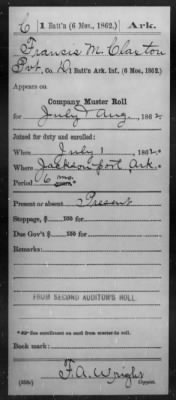 C 1 Batt'n (6 Mos., 1862.) Ark.
Francis M. Claxton
Pvt, Co. D, 1 Batt'n Ark. Inf. (6 Mos., 1862.)
Appears on
Company Muster Roll
for July & Aug, 1862
Joined for duty and enrolled:
When July 1, 1862.*
Where Jacksonport, Ark.*
Period 6 mo. years.*
Present or absent Present
Stoppage, $ 100 for
Due Gov't $ 100 for
Remarks:
FROM SECOND AUDITOR'S ROLL.
*See enrollment on card from muster-in roll.
Book mark:
F. A. Wright
Copyist.